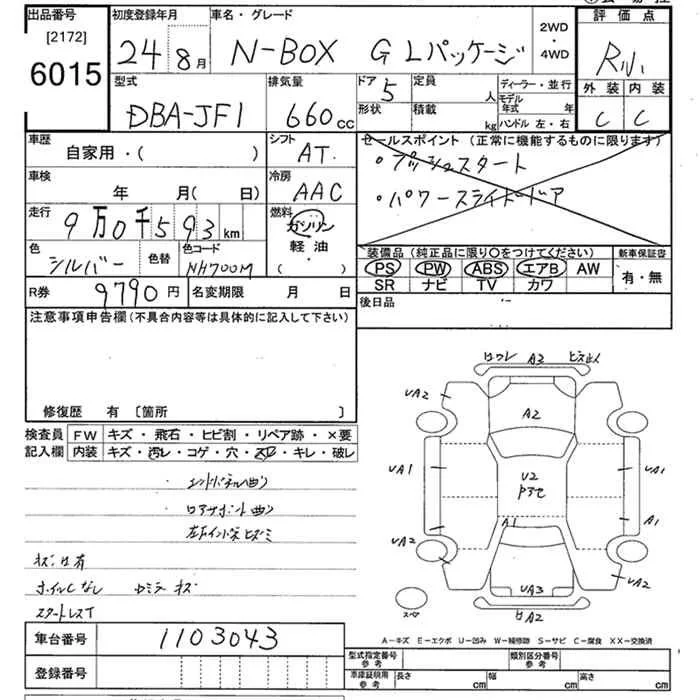 出品番号
[2172]
6015
初度登録年月
24 8月
車名・グレード
N-BOX GLパッケージ
2WD・4WD
評価点
外装 内装
C C
型式
DBA-JF1
排気量
660cc
ドア 5
定員 人
形状
積載 kg
ディーラー・並行
モデル年式 年
ハンドル 左・右
車歴
自家用・( )
シフト
AT.
セールスポイント (正常に機能するものに限ります)
・プッシュスタート
・パワースライドドア
車検
年 月( 日)
冷房
AAC
走行
9万0千593km
燃料
ガソリン
軽油・
( )
色
シルバー
色替
色コード
NH700M
装備品(純正品に限り○をつけてください)
PS PW ABS エアB AW
SR ナビ TV カワ
新車保証書
有・無
R券 9790円
名変期限 月 日
後日品
注意事項申告欄(不具合内容等は具体的に記入して下さい)
修復歴 有 〔箇所 〕
検査員記入欄
FW キズ・飛石・ヒビ割・リペア跡・×要
内装 キズ・汚レ・コゲ・穴・スレ・キレ・破レ
エンドパネル曲り
ロアサポート曲り
キズ 凹 有
ホイルCなし
ワレ A2
UA2
A2
UA1
U2
UA1
A1
A1
UA2
UA2
UA3
スペア
A2
A-キズ E-エクボ U-凹み W-補修跡 S-サビ C-腐食 XX-交換済
車台番号
1103043
登録番号
型式指定番号 参考
類別区分番号 参考
車庫証明用 参考
長さ cm
幅 cm
高さ cm